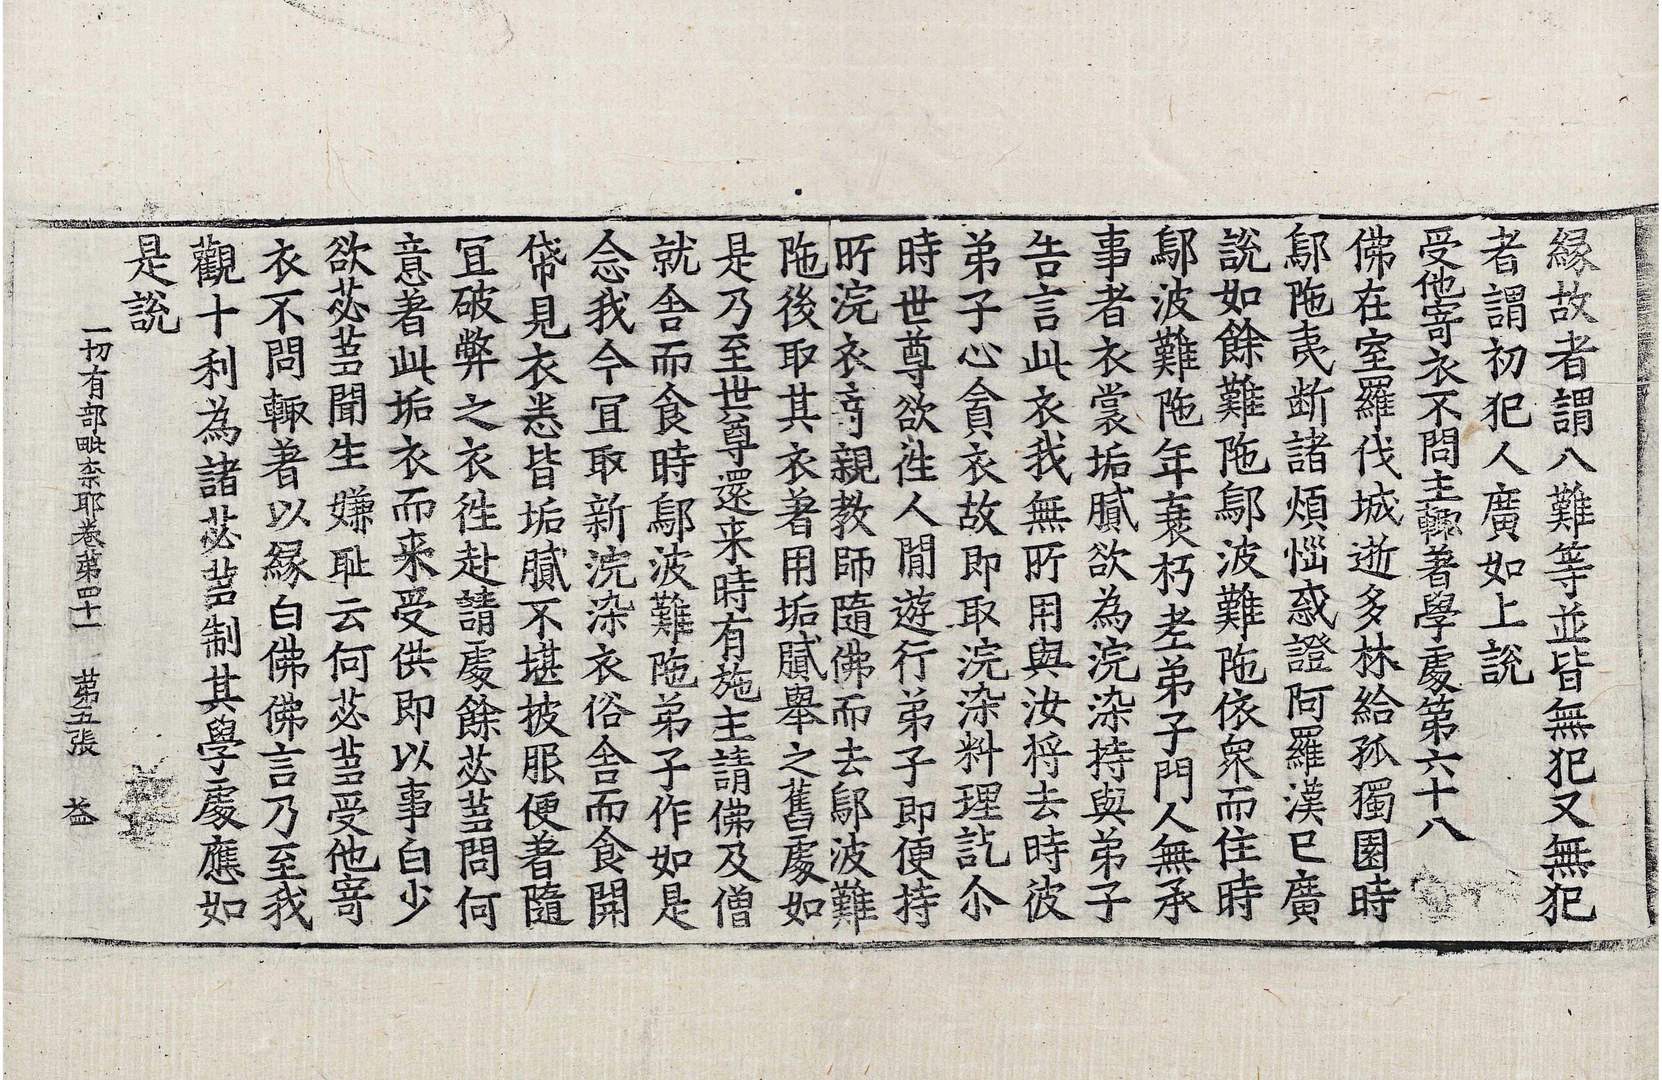 緣故者謂八難等並皆無犯又無犯
者謂初犯人廣如上說
受他寄衣不問主輙著學處第六十八
佛在室羅伐城逝多林給孤獨園時
鄔陁夷断諸煩惱惑證阿羅漢已廣
說如餘難陁鄔波難陁依衆而住時
鄔波難陁年衰朽老弟子門人無承
事者衣裳垢膩欲為浣染持與弟子
告言此衣我無所用與汝将去時彼
弟子心貪衣故即取浣染料理訖尒
時世尊欲往人閒遊行弟子即便持
所浣衣寄親教師隨佛而去鄔波難
陁後取其衣著用垢膩舉之舊處如
是乃至世尊還来時有施主請佛及僧
就舍而食時鄔波難陁弟子作如是
念我今冝取新浣染衣俗舍而食開
帒見衣悉皆垢膩不堪披服便著隨
冝破弊之衣徃赴請處餘苾芻問何
意著此垢衣而来受供即以事白少
欲苾芻聞生嫌耻云何苾芻受他寄
衣不問輙著以緣白佛佛言乃至我
觀十利為諸苾芻制其學處應如
是說
一切有部毗奈耶卷第四十一 苐五張 益